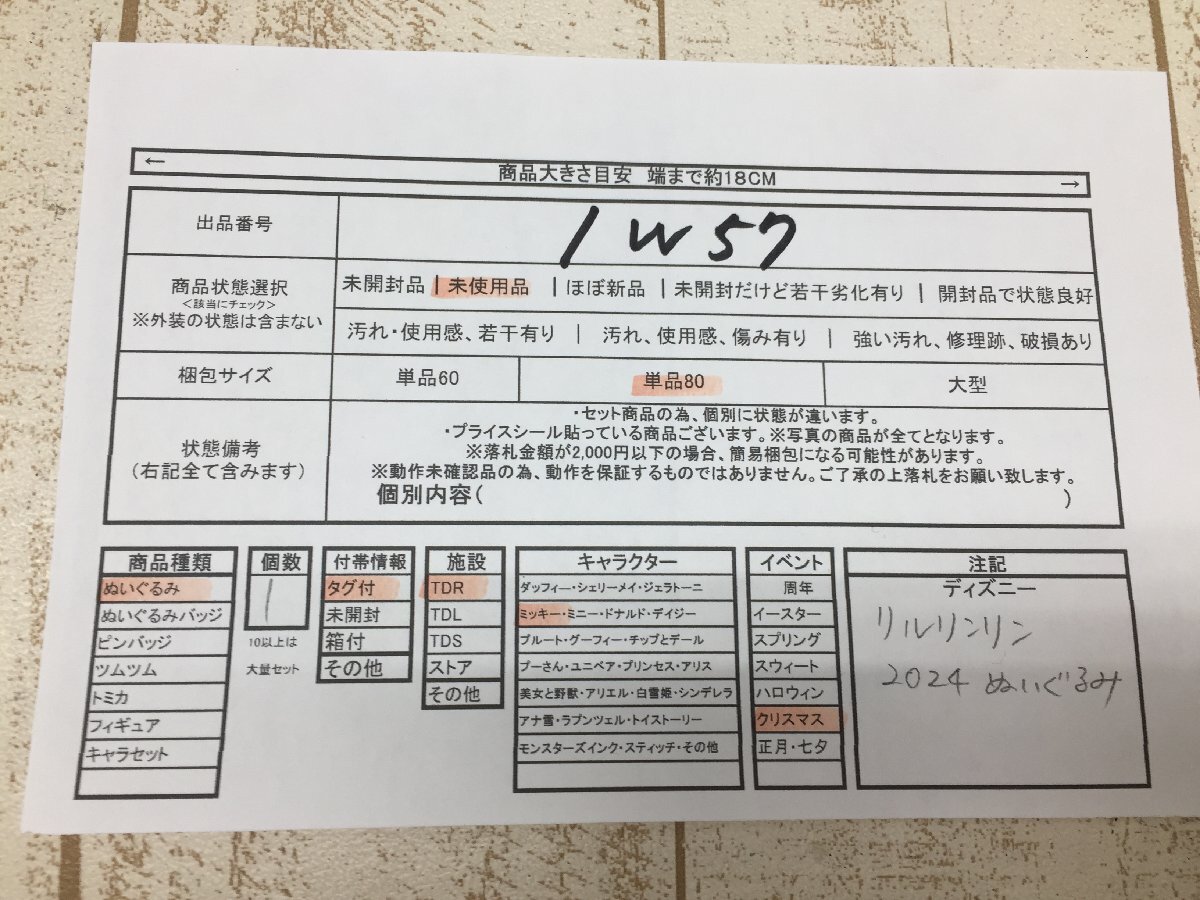 ← 商品大きさ目安 端まで約18CM →
出品番号 1W57
商品状態選択
<該当にチェック>
※外装の状態は含まない
未開封品 | 未使用品 | ほぼ新品 | 未開封だけど若干劣化有り | 開封品で状態良好
汚れ・使用感、若干有り | 汚れ、使用感、傷み有り | 強い汚れ、修理跡、破損あり
梱包サイズ 単品60 単品80 大型
状態備考
(右記全て含みます)
・セット商品の為、個別に状態が違います。
・プライスシール貼っている商品ございます。※写真の商品が全てとなります。
※落札金額が2,000円以下の場合、簡易梱包になる可能性があります。
※動作未確認品の為、動作を保証するものではありません。ご了承の上落札をお願い致します。
個別内容( )
商品種類
ぬいぐるみ
ぬいぐるみバッジ
ピンバッジ
ツムツム
トミカ
フィギュア
キャラセット
個数
1
10以上は
大量セット
付帯情報
タグ付
未開封
箱付
その他
施設
TDR
TDL
TDS
ストア
その他
キャラクター
ダッフィー・シェリーメイ・ジェラトーニ
ミッキー・ミニー・ドナルド・デイジー
プルート・グーフィー・チップとデール
プーさん・ユニベア・プリンセス・アリス
美女と野獣・アリエル・白雪姫・シンデレラ
アナ雪・ラプンツェル・トイストーリー
モンスターズインク・スティッチ・その他
イベント
周年
イースター
スプリング
スウィート
ハロウィン
クリスマス
正月・七夕
注記
ディズニー
リルリンリン
2024 ぬいぐるみ